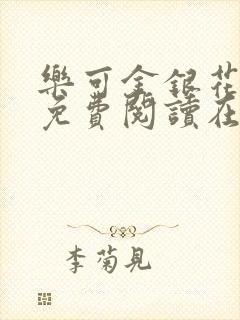 樂可金銀花
免費閱讀在
李菊見